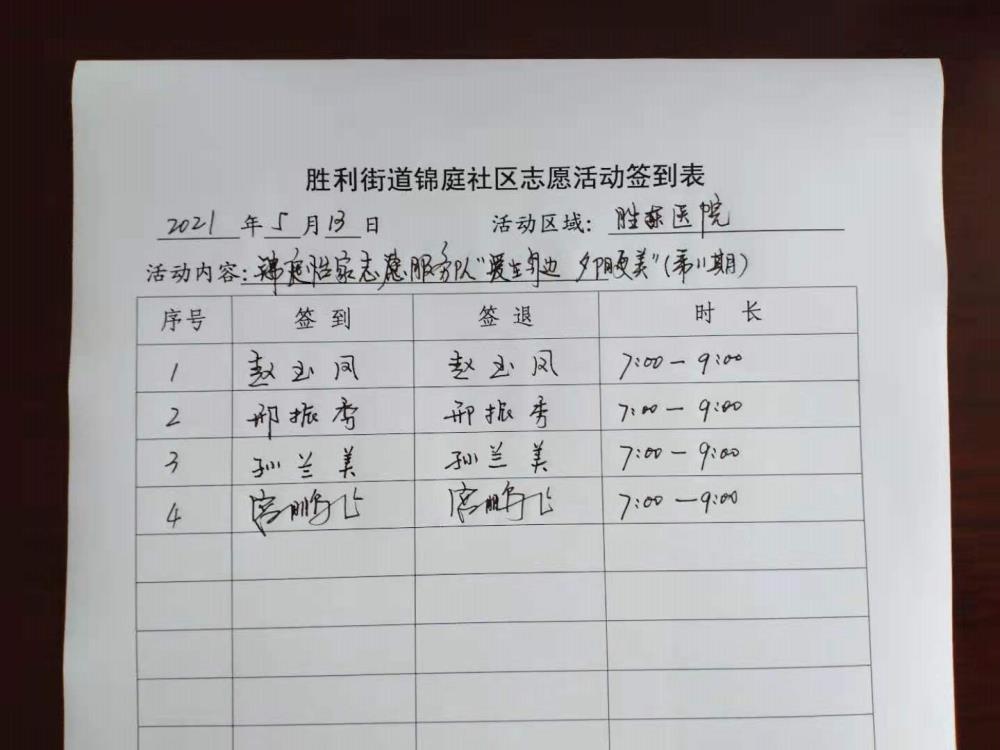 胜利街道锦庭社区志愿活动签到表
2021年5月13日 活动区域：胜东医院
活动内容：锦庭怡家志愿服务队“爱在身边 夕阳更美”(第11期)
序号 签到 签退 时长
1 赵玉凤 赵玉凤 7:00-9:00
2 邢振秀 邢振秀 7:00-9:00
3 孙兰美 孙兰美 7:00-9:00
4 鹏飞 鹏飞 7:00-9:00